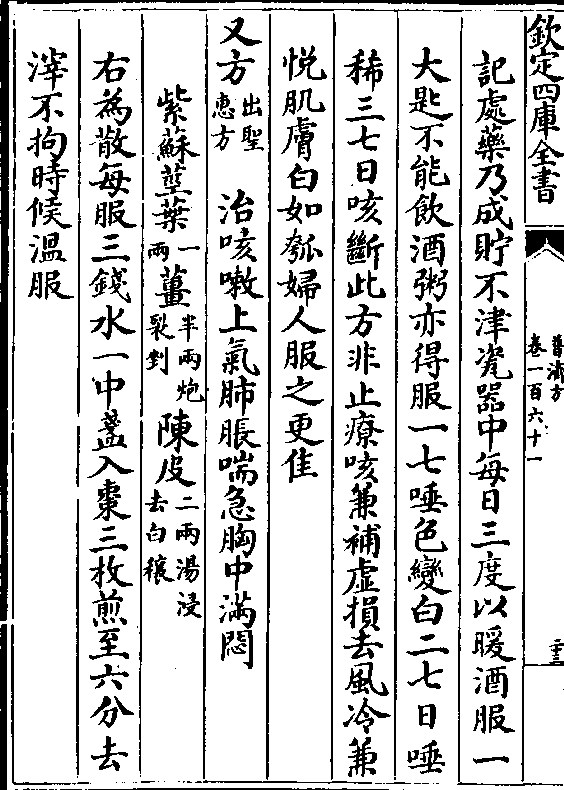 欽定四庫全書
普濟方
卷一百六十一
二十三
記處藥乃成貯不津瓷器中每日三度以暖酒服一
大匙不能飲酒粥亦得服一七唾色變白二七日唾
稀三七日咳斷此方非止療咳兼補虛損去風冷兼
悦肌膚白如瓠婦人服之更佳
又方出聖惠方　治咳嗽上氣肺脹喘急胸中滿悶
紫蘇莖葉一兩薑半兩炮裂剉陳皮二兩湯浸去白穰
右為散每服三錢水一中盞入棗三枚煎至六分去
滓不拘時候溫服